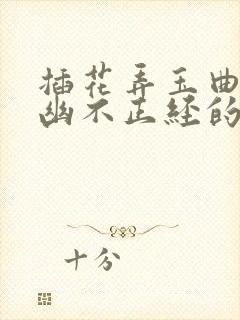 插花弄玉曲
幽不正经的
十分